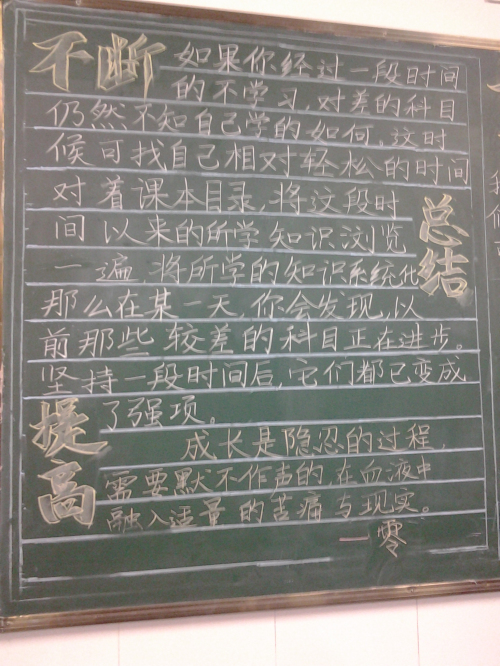 不断
如果你经过一段时间
的不学习对差的科目
仍然不知自己学的如何,这时
候可找自己相对轻松的时间
对着课本目录,将这段时
间以来的所学知识浏览
一遍 将所学的知识系统化
总结
那么在某一天,你会发现,以
前那些较差的科目正在进步。
坚持一段时间后,它们都已变成
了强项。
提高
成长是隐忍的过程,
需要默不作声的在血液中
融入的苦痛与现实。